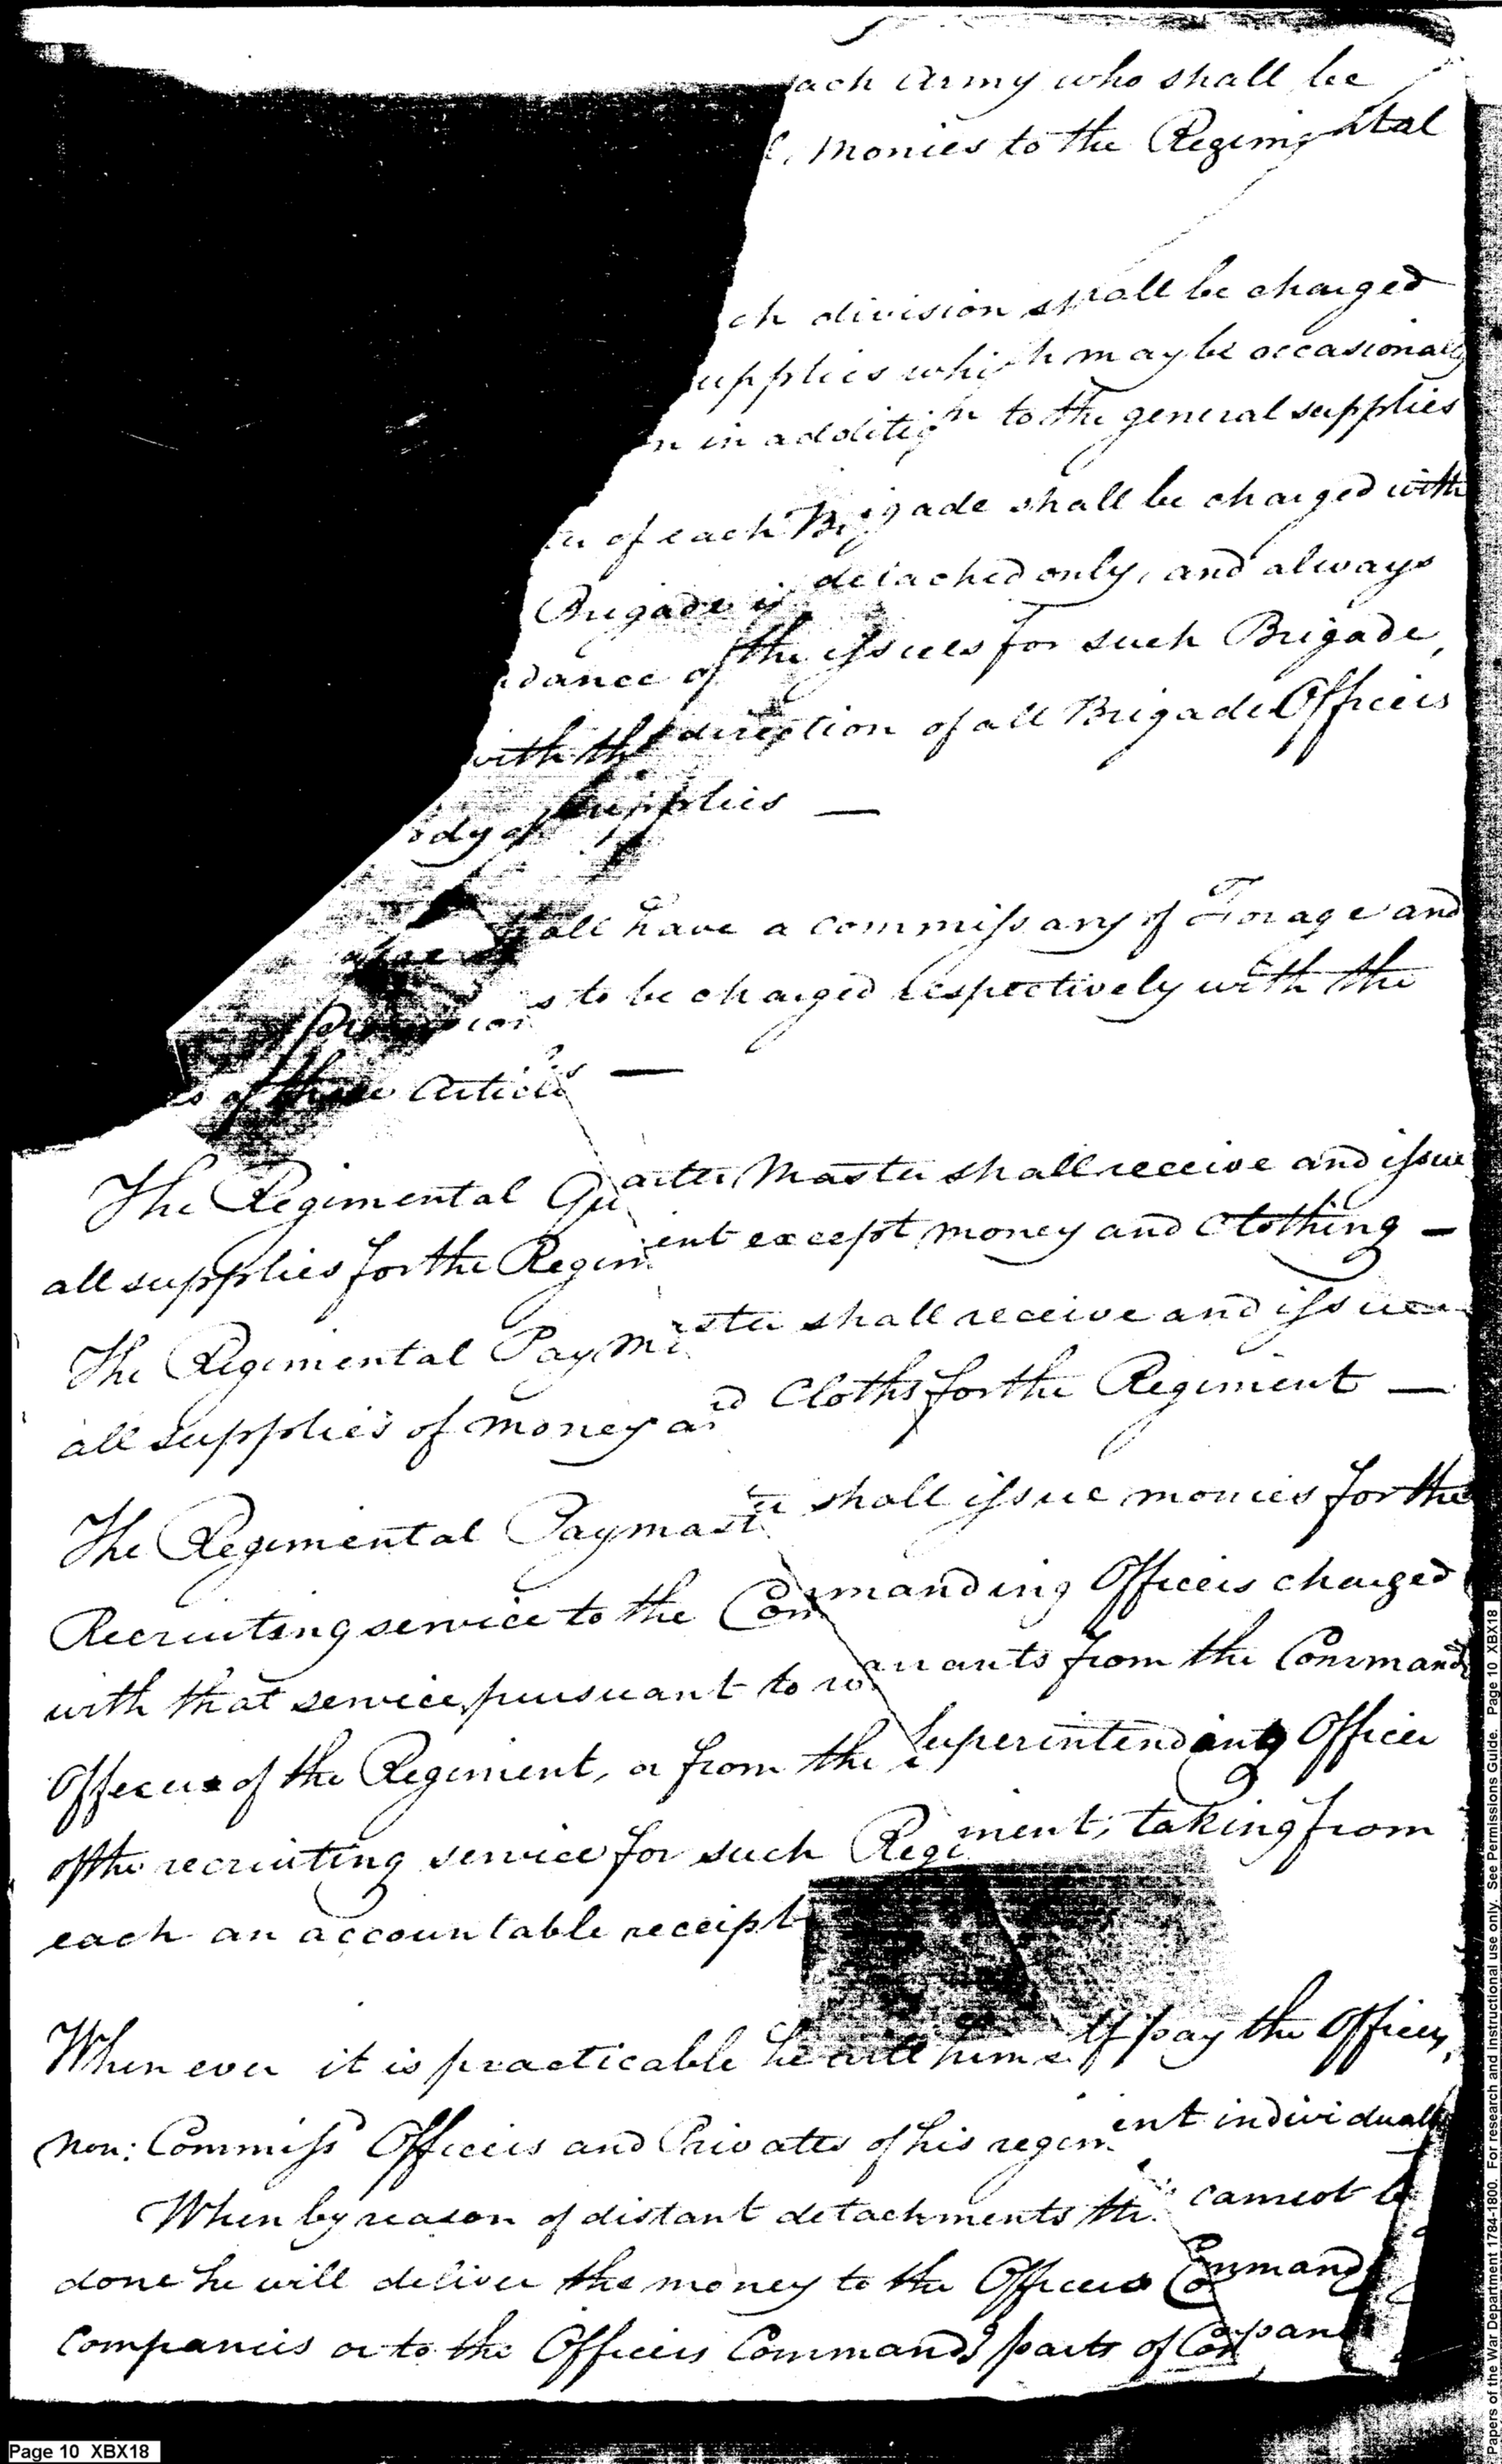 ach Army who shall be
Monies to the Regimental
ch division shall be charged
upplies which may be occasionally
n in addition to the general supplies
of each Brigade shall be charged with
Brigade is detached only, and always
dance of the issues for such Brigade,
with the direction of all Brigade Officers
ody of supplies —
shall have a commissary of Forage and
s to be charged respectively with the
s of these Articles —
The Regimental Quarter Master shall receive and issue
all supplies for the Regiment except money and Clothing —
The Regimental Paymaster shall receive and issue
all supplies of money and Cloths for the Regiment —
The Regimental Paymaster shall issue monies for the
Recruiting service to the Commanding Officers charged
with that service, pursuant to warrants from the Commandg
Officer of the Regiment, or from the Superintending Officer
of the recruiting service for such Regiment, taking from
each an accountable receipt
When ever it is practicable he will himself pay the Officers,
Non: Commissd Officers and Privates of his regiment individually
When by reason of distant detachments this cannot be
done he will deliver the money to the Officers Commandg
Companies or to the Officers Commandg parts of Compan
Page 10 XBX18
Papers of the War Department 1784-1800. For research and instructional use only. See Permissions Guide. Page 10 XBX18